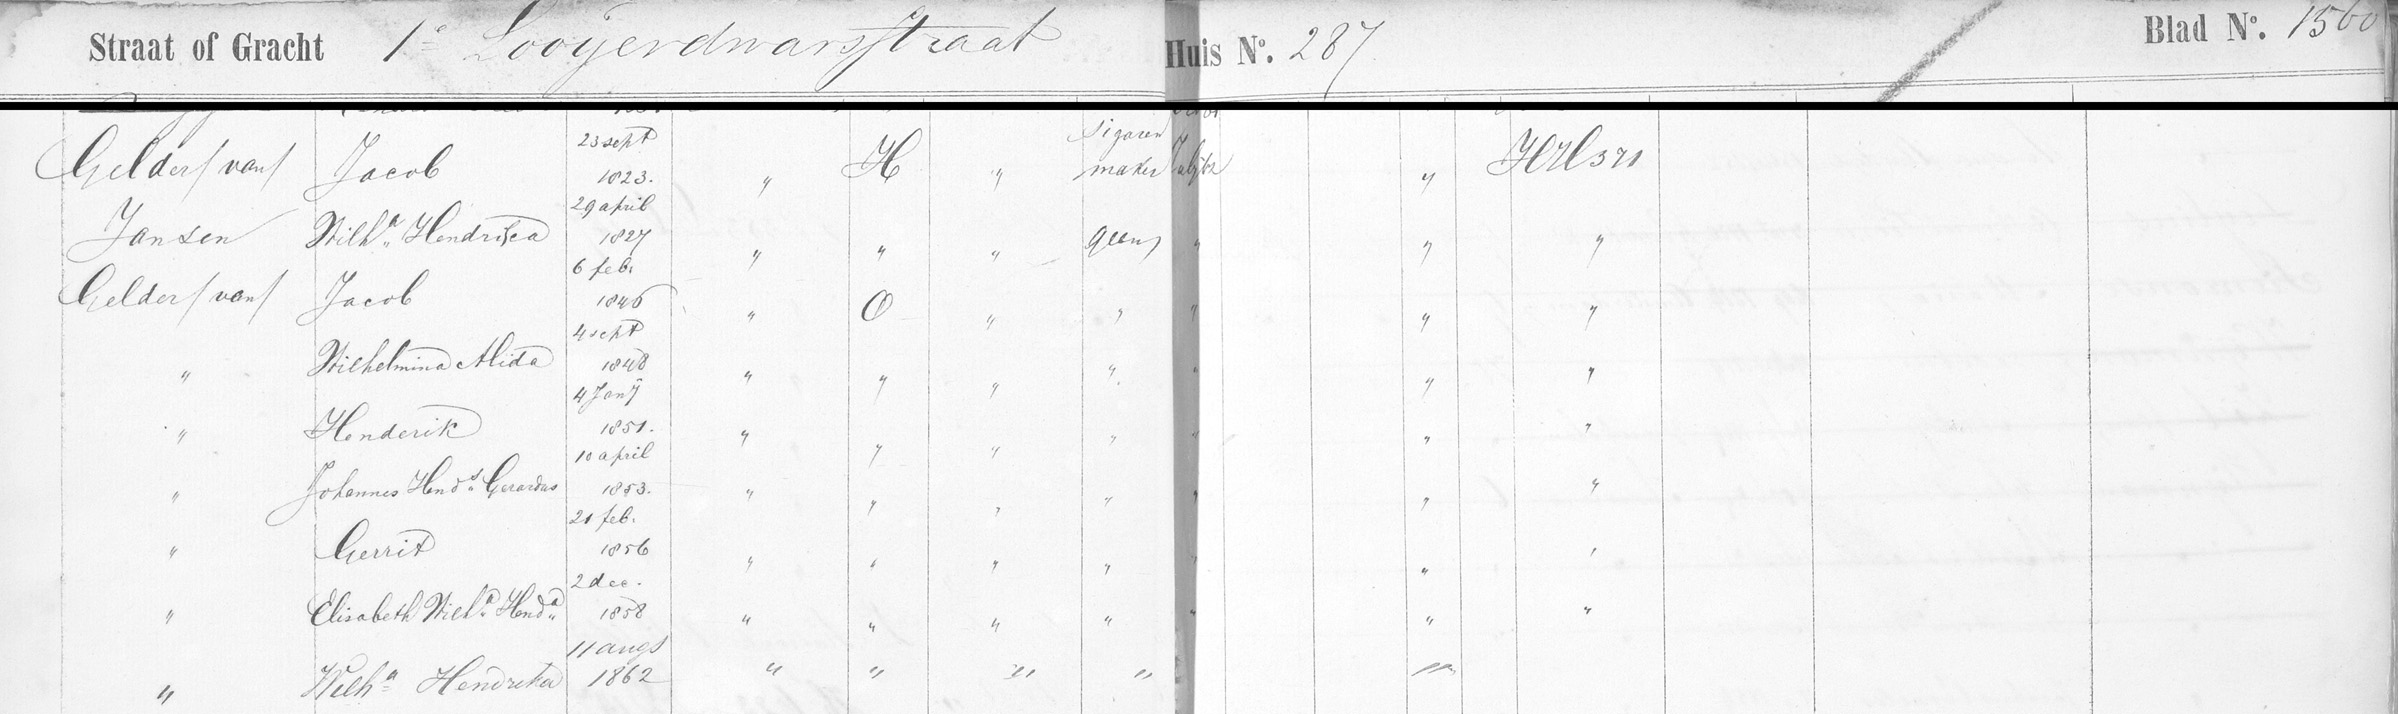 Straat of Gracht 1e Looyerdwarsstraat Huis No. 287 Blad No. 1560
Gelder (van) Jacob 23 sept 1823. " H " sigaren maker "
Jansen Wilha. Hendrica 29 april 1827 " " " geen " " "
Gelder (van) Jacob 6 feb. 1846 " O " " " " "
" Wilhelmina Alida 4 sept 1848 " " " " " " "
" Henderik 4 Jany 1851. " " " " " " "
" Johannes Hends. Gerardus 10 april 1853. " " " " " " "
" Gerrit 21 feb. 1856 " " " " " " "
" Elisabeth Wilha. Henda. 2 dec. 1858 " " " " " " "
" Wilha. Hendrika 11 augs 1862 " " " " "